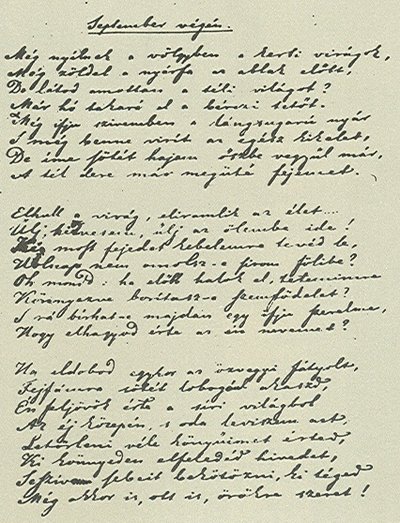 Szeptember végén.
Még nyílnak a völgyben a kerti virágok,
Még zöldel a nyárfa az ablak előtt,
De látod amottan a téli világot?
Már hó takará el a bérczi tetőt.
Még ifju szivemben a lángsugarú nyár
S még benne virít az egész kikelet,
De íme sötét hajam őszbe vegyűl már,
A tél dere már megüté fejemet.
Elhull a virág, eliramlik az élet....
Űlj, hitvesem, űlj az ölembe ide!
Ki most fejedet kebelemre tevéd le,
Holnap nem omolsz-e sirom fölibe?
Oh mondd: ha előbb halok el, tetemimre
Könnyezve borítasz-e szemfödelet?
S rá birhat-e majdan egy ifju szerelme,
Hogy elhagyod érte az én nevemet?
Ha eldobod egykor az özvegyi fátyolt,
Fejfámra sötét lobogóul akaszd,
Én feljövök érte a síri világból
Az éj közepén, s oda leviszem azt,
Letörleni véle könyűimet érted,
Ki könnyeden elfeledéd hivedet,
S e szív sebeit bekötözni, ki téged
Még akkor is, ott is, örökre szeret!